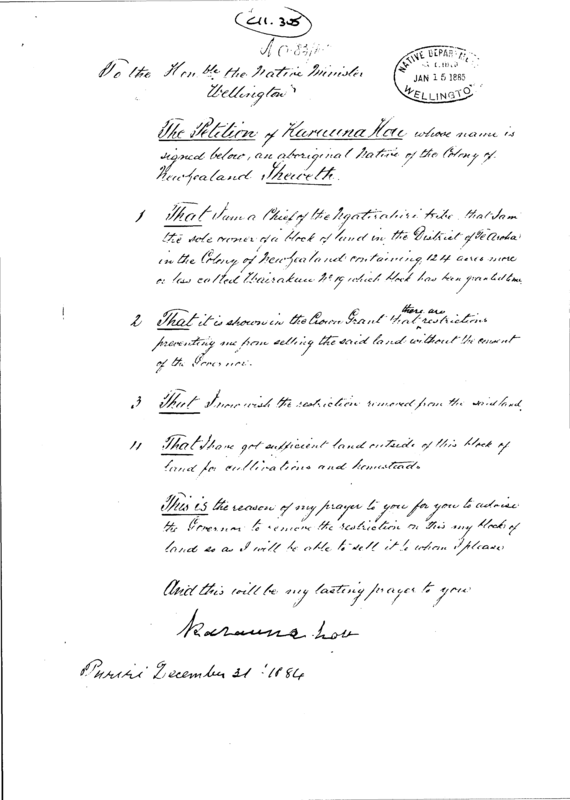 C11.305
To the Hon.ble the Native Minister
Wellington
NATIVE DEPAR
JAN 15 1885
WELLINGTO
The Petition of Karauna Hou whose name is
signed below, an aboriginal Native of the Colony of
New Zealand Sheweth.
1 That I am a Chief of the Ngatirahiri tribe, that I am
the sole owner of a block of land in the District of Te Aroha
in the Colony of New Zealand containing 124 acres more
or less called Wairakau No 19 which block has been granted to me.
there are
2 That it is shown in the Crown Grant that restrictions
preventing me from selling the said land without the consent
of the Governor.
3 That I now wish the restriction removed from the said land.
4 That I have got sufficient land outside of this block of
land for cultivations and homesteads
This is the reason of my prayer to you for you to advise
the Governor to remove the restriction on this my block of
land so as I will be able to sell it to whom I please
And this will be my lasting prayer to you
Karauna hou
Puriri December 31 : 1884